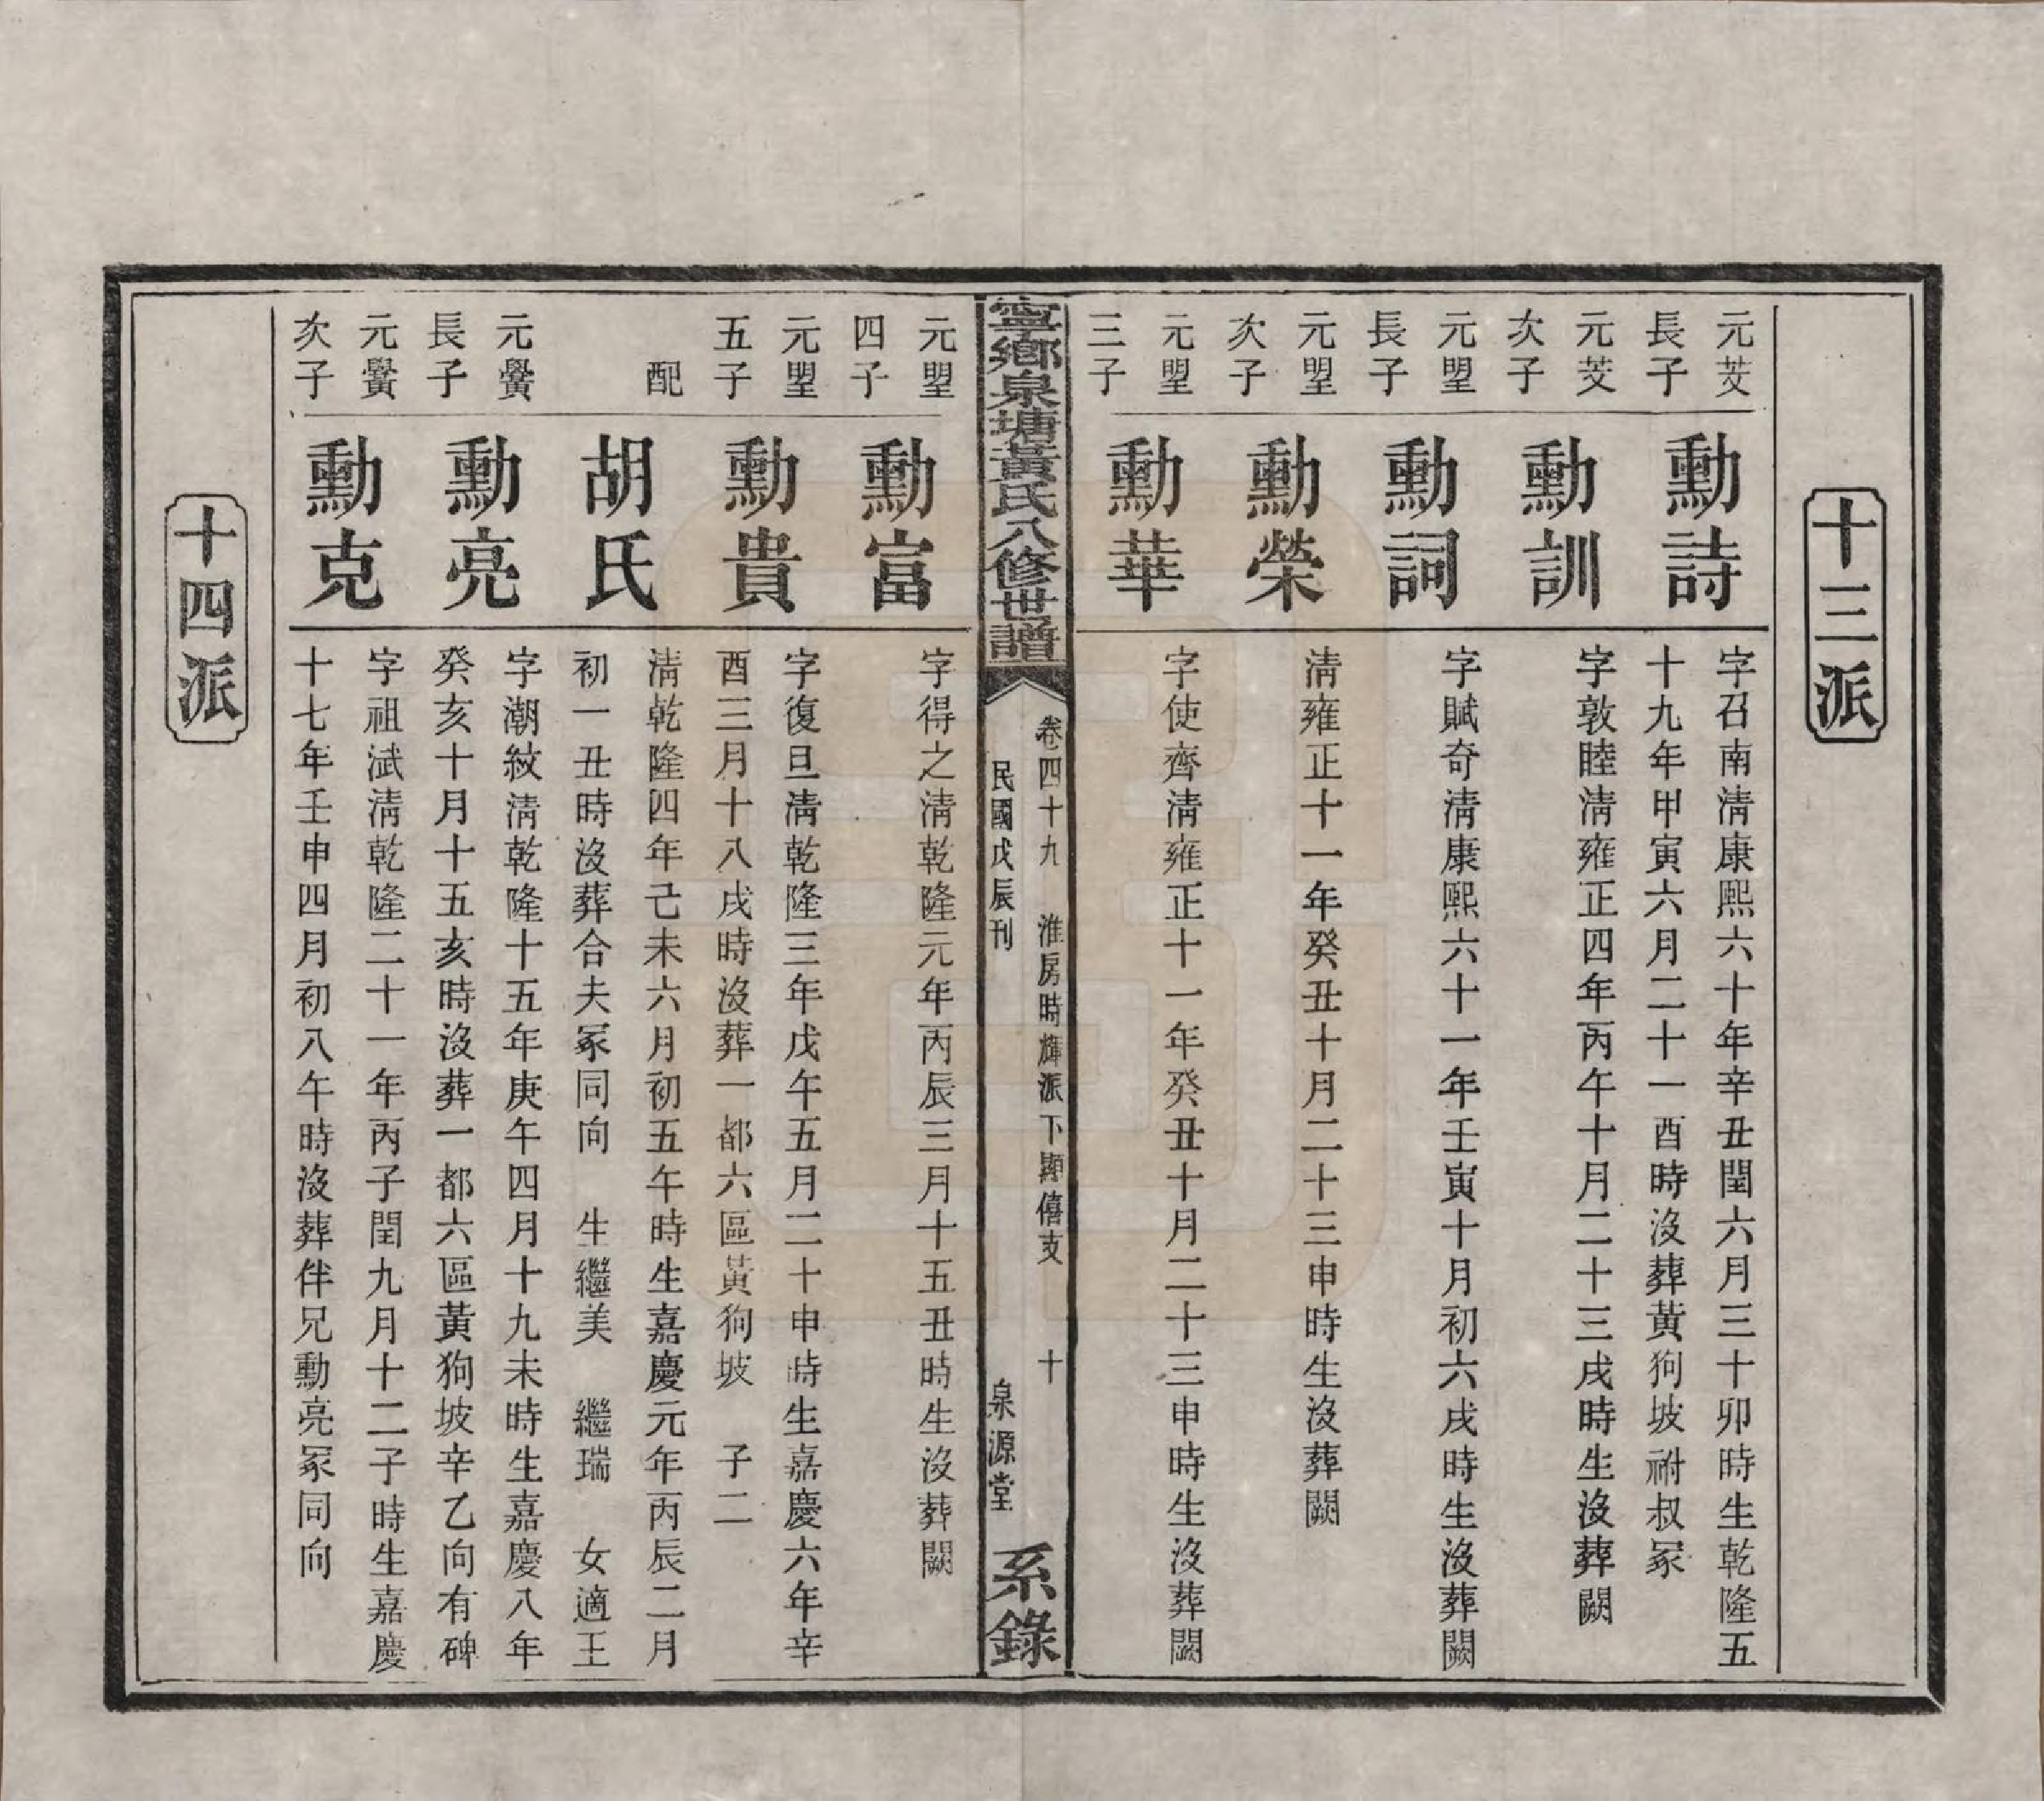 十三派
元茭
長子
勳詩
字召南淸康熙六十年辛丑閏六月三十卯時生乾隆五
十九年甲寅六月二十一酉時沒葬黃狗坡祔叔冢
元茭
次子
勳訓
字敦睦淸雍正四年丙午十月二十三戌時生沒葬闕
元琞
長子
勳詞
字賦奇淸康熙六十一年壬寅十月初六戌時生沒葬闕
元琞
次子
勳榮
淸雍正十一年癸丑十月二十三申時生沒葬闕
元琞
三子
勳華
字使齊淸雍正十一年癸丑十月二十三申時生沒葬闕
寧鄉泉塘黃氏八修世譜
卷四十九 淮房時輝派下顯僖支 十
民國戊辰刊 泉源堂
系錄
元琞
四子
勳富
字得之淸乾隆元年丙辰三月十五丑時生沒葬闕
元琞
五子
勳貴
字復旦淸乾隆三年戊午五月二十申時生嘉慶六年辛
酉三月十八戌時沒葬一都六區黃狗坡 子二
配
胡氏
淸乾隆四年己未六月初五午時生嘉慶元年丙辰二月
初一丑時沒葬合夫冢同向 生繼美 繼瑞 女適王
元黌
長子
勳亮
字潮紋淸乾隆十五年庚午四月十九未時生嘉慶八年
癸亥十月十五亥時沒葬一都六區黃狗坡辛乙向有碑
元黌
次子
勳克
字祖斌淸乾隆二十一年丙子閏九月十二子時生嘉慶
十七年壬申四月初八午時沒葬伴兄勳亮冢同向
十四派